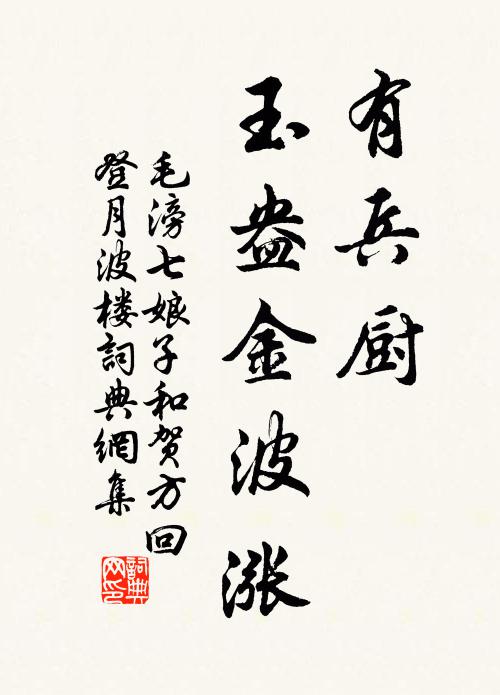 有兵厨
玉盎金波涨
毛滂七娘子和贺方回
登月波楼詞典網集
詞典网印